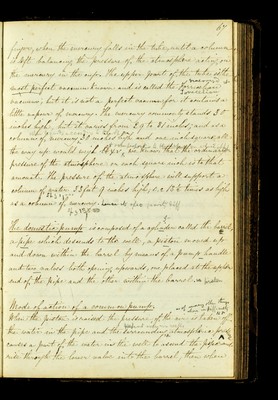 67
figure, when the mercury falls in the tube, until a column
is left balancing the pressure of the atmosphere acting on
the mercury in the cup. The upper part of the tube is the
most perfect vacuum known and is called the Torricellian
vacuum
vacuum, but it is not a perfect vacuum for it contains a
little vapour of mercury. The mercury commonly stands 30
inches high, but it varies from 29 to 31 inches; and as a
column of mercury 30 inches high and one inch square all
the way up would weigh 15 lbs, we know that the
pressure of the atmosphere on each square inch is to that
amount. The pressure of the atmosphere will support a
column of water 33 feet 9 inches high, i.e. 13½ times as high
as a column of mercury.
The domestic pump is composed of a cylinder called the barrel,
a pipe which descends to the well, a piston moved up
and down within the barrel by means of a pump handle
and two valves both opening upwards, one placed at the upper
end of the pipe and the other within the barrel.
Mode of action of a common pump.
When the piston is raised the pressure of the air is taken off
the water in the pipe and the surrounding atmospheric pressure
causes a part of the water in the well to ascend the pipe and
rush through the lower valve into the barrel, then when